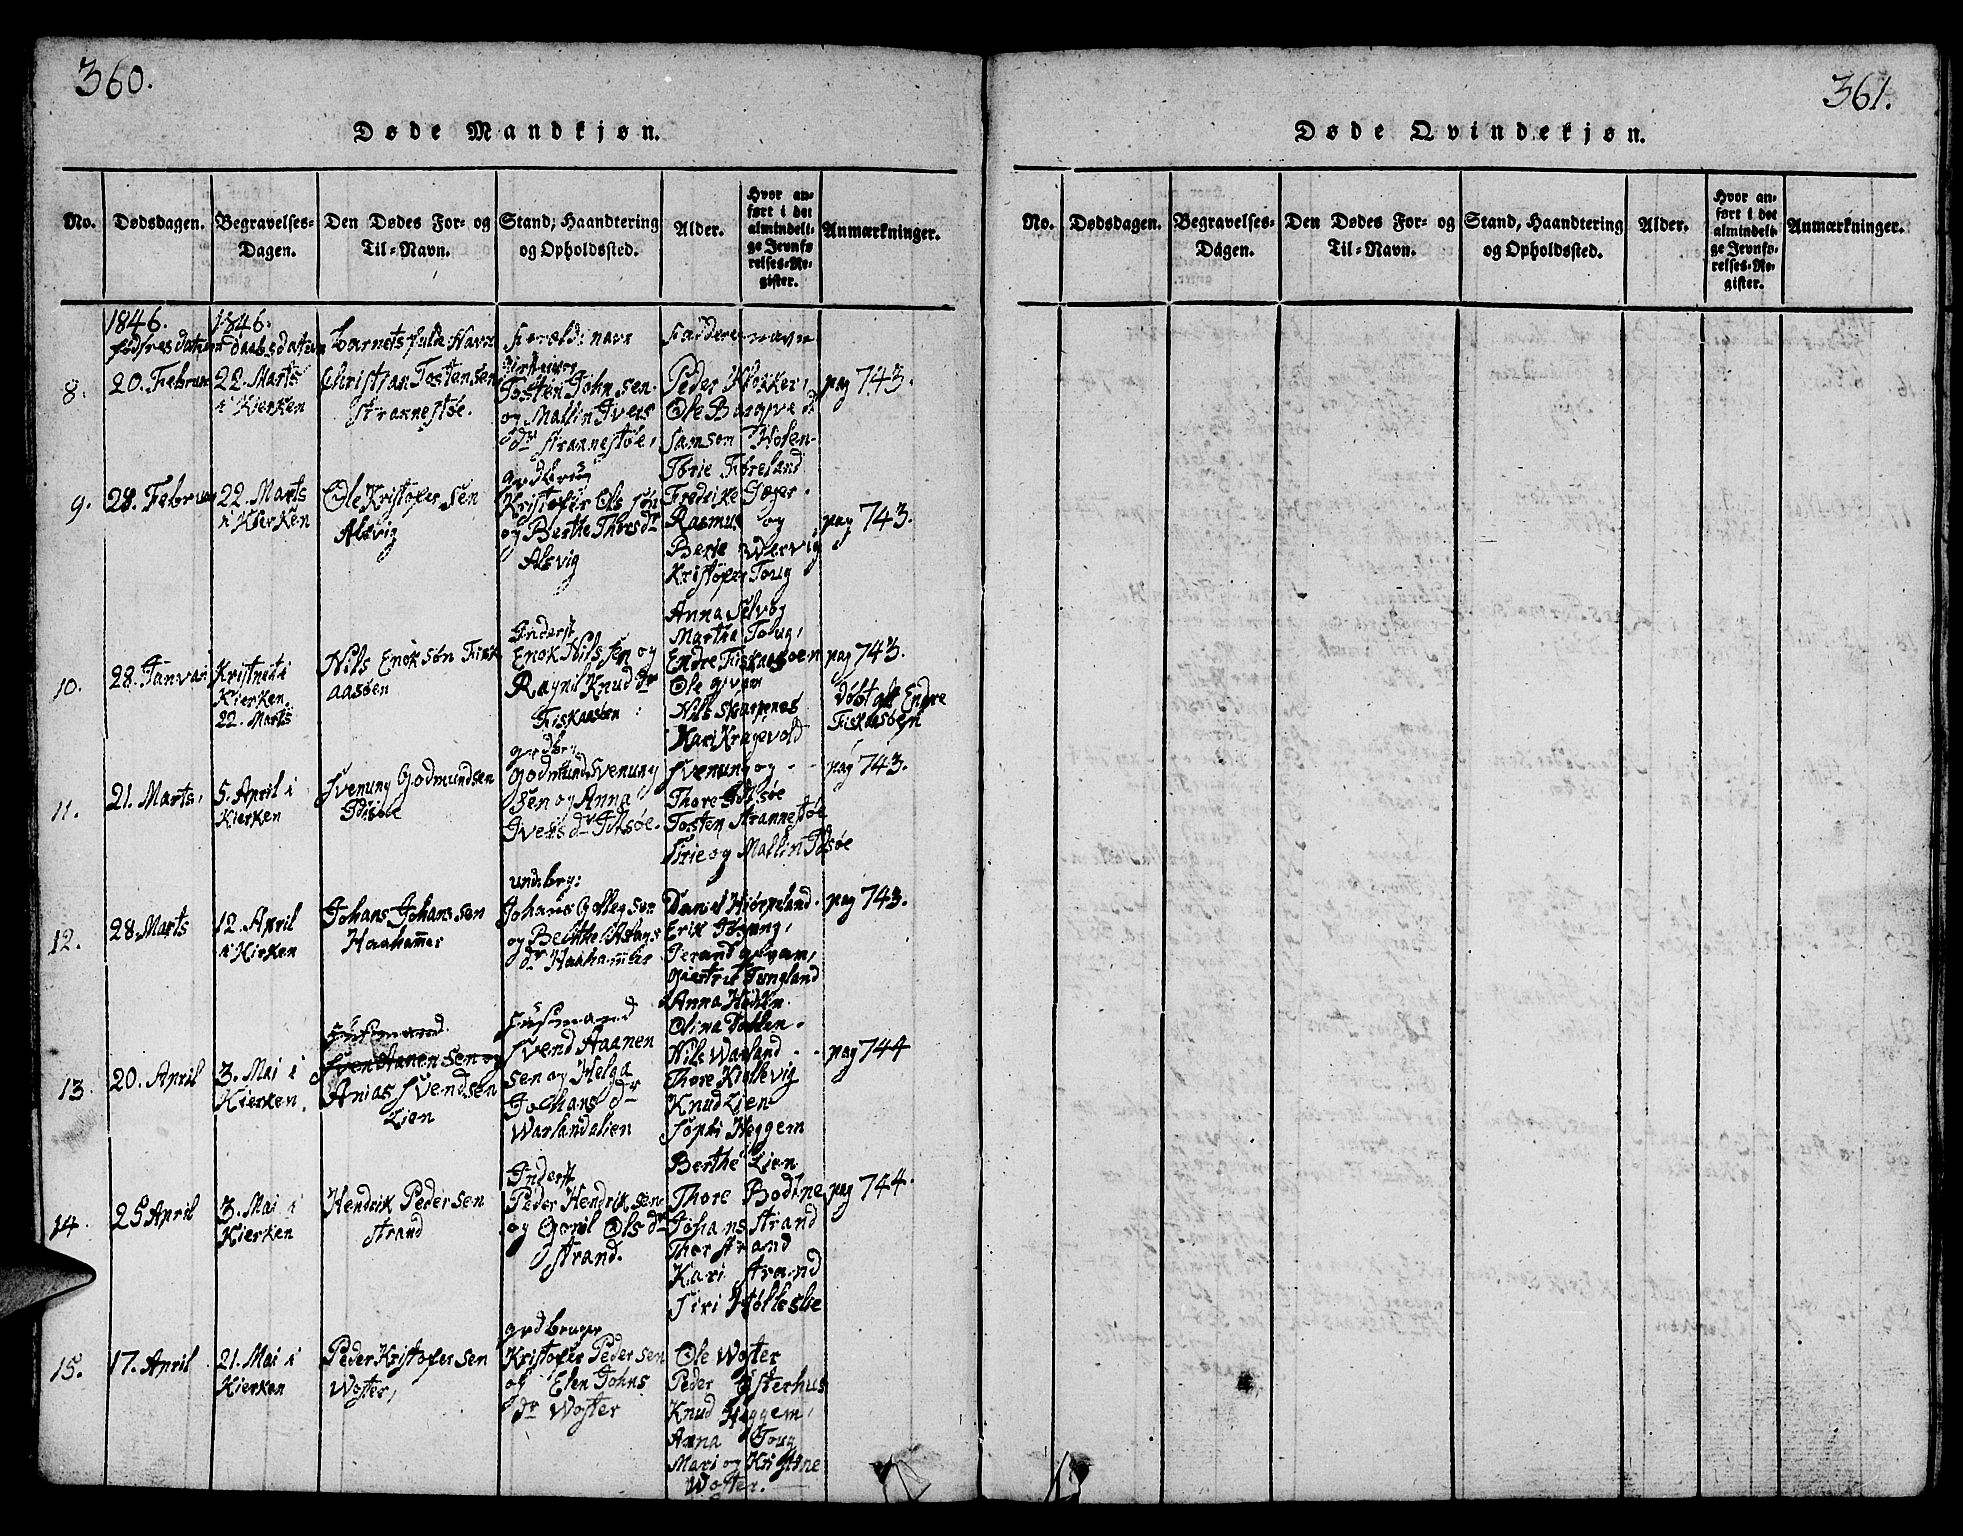 360.
Døde Mandkjøn.
No. Dødsdagen. Begravelses-Dagen. Den Dødes For- og Til-Navn. Stand, Haandtering og Opholdssted. Alder. Hvor anført i det almindelige Jevnførelses-Register. Anmærkninger.
1846. 1846.
fødselsdatum daabsdatum barnets fulde Navn Foræld: navn Faddere navn
8. 20. Februar 22. Marts i Kierken
Christjan Tostensen Strannestøe.
Tosten Johnsen og Mallin Ivers dr Strannestøe,
Peder Klokker,
Ole Bargive
Samson Holen
Torie Føreland
Fredrike Jæger.
pag 743.
9. 28. Februar 22. Marts i Kierken
Ole Kristofersen Alsvig
grdbrug
Kristofer Olesøn og Berthe Thors dr Alsvig
Rasmus og
Berie Wervig
Kristofer Toug
Anna Selvog
Martha Toug,
pag 743.
10. 28. Januar Kristnet i Kierken. 22. Marts
Nils Enoksøn Fiskaasøen
Inderst
Enok Nilssen og Ragnil Knud dr Fiskaasøen
Endre Fiskaasøen
Ole givam
Nils Skarpenes
Kari Kragevold
pag 743.
døbt af Endre Fiskaasøen
11. 21. Marts, 5. April i Kierken
Svenung Godmundsen Idsøe
grdbr.
Godmund Svenungsen og Anna Ivers dr Idsøe.
Svenung og
Thore Idsøe
Tosten Strannestøe
Sirie og Mallin Idsøe
pag 743.
12. 28. Marts 12. April i Kierken
Johans Johanssen Haahammer
und.brg:
Johans Gollegsøn og Berthe Adans dr Haahammer
Daniel Hiørpeland.
Erik Tøgung,
Perand givam,
Giertrit Tungland
Anna Hedlem
Olina Dahlen.
pag 743.
13. 20. April 3. Mai i Kierken.
Husmand
Svend Aanensen og
Anias Svendsen Lien
Husmand
Svend Aanensen og Helga Johans dr Warlandslien
Nils Warland
Thore Kiøllevig
Knud Lien
Sophi Heggem
Berthe Lien
pag 744
14. 25 April 3. Mai i Kierken
Hendrik Pedersen Strand
Inderst
Peder Hendriksen og Goril Ols dr Strand.
Thore Bodlne
Johans Strand
Thor Strand
Kari Strand
Siri Hølleslie
pag 744.
15. 17. April 21. Mai i Kierken
Peder Kristofersen Woster,
grdbruger
Kristofer Pedersen og Elen Johns dr Woster
Ole Woster
Peder Østerhus
Knud Heggem,
Anna Toug
Mari og Kristine Woster.
361.
Døde Qvindekjøn.
No. Dødsdagen. Begravelses-Dagen. Den Dødes For- og Til-Navn. Stand, Haandtering og Opholdssted. Alder. Hvor anført i det almindelige Jevnførelses-Register. Anmærkninger.